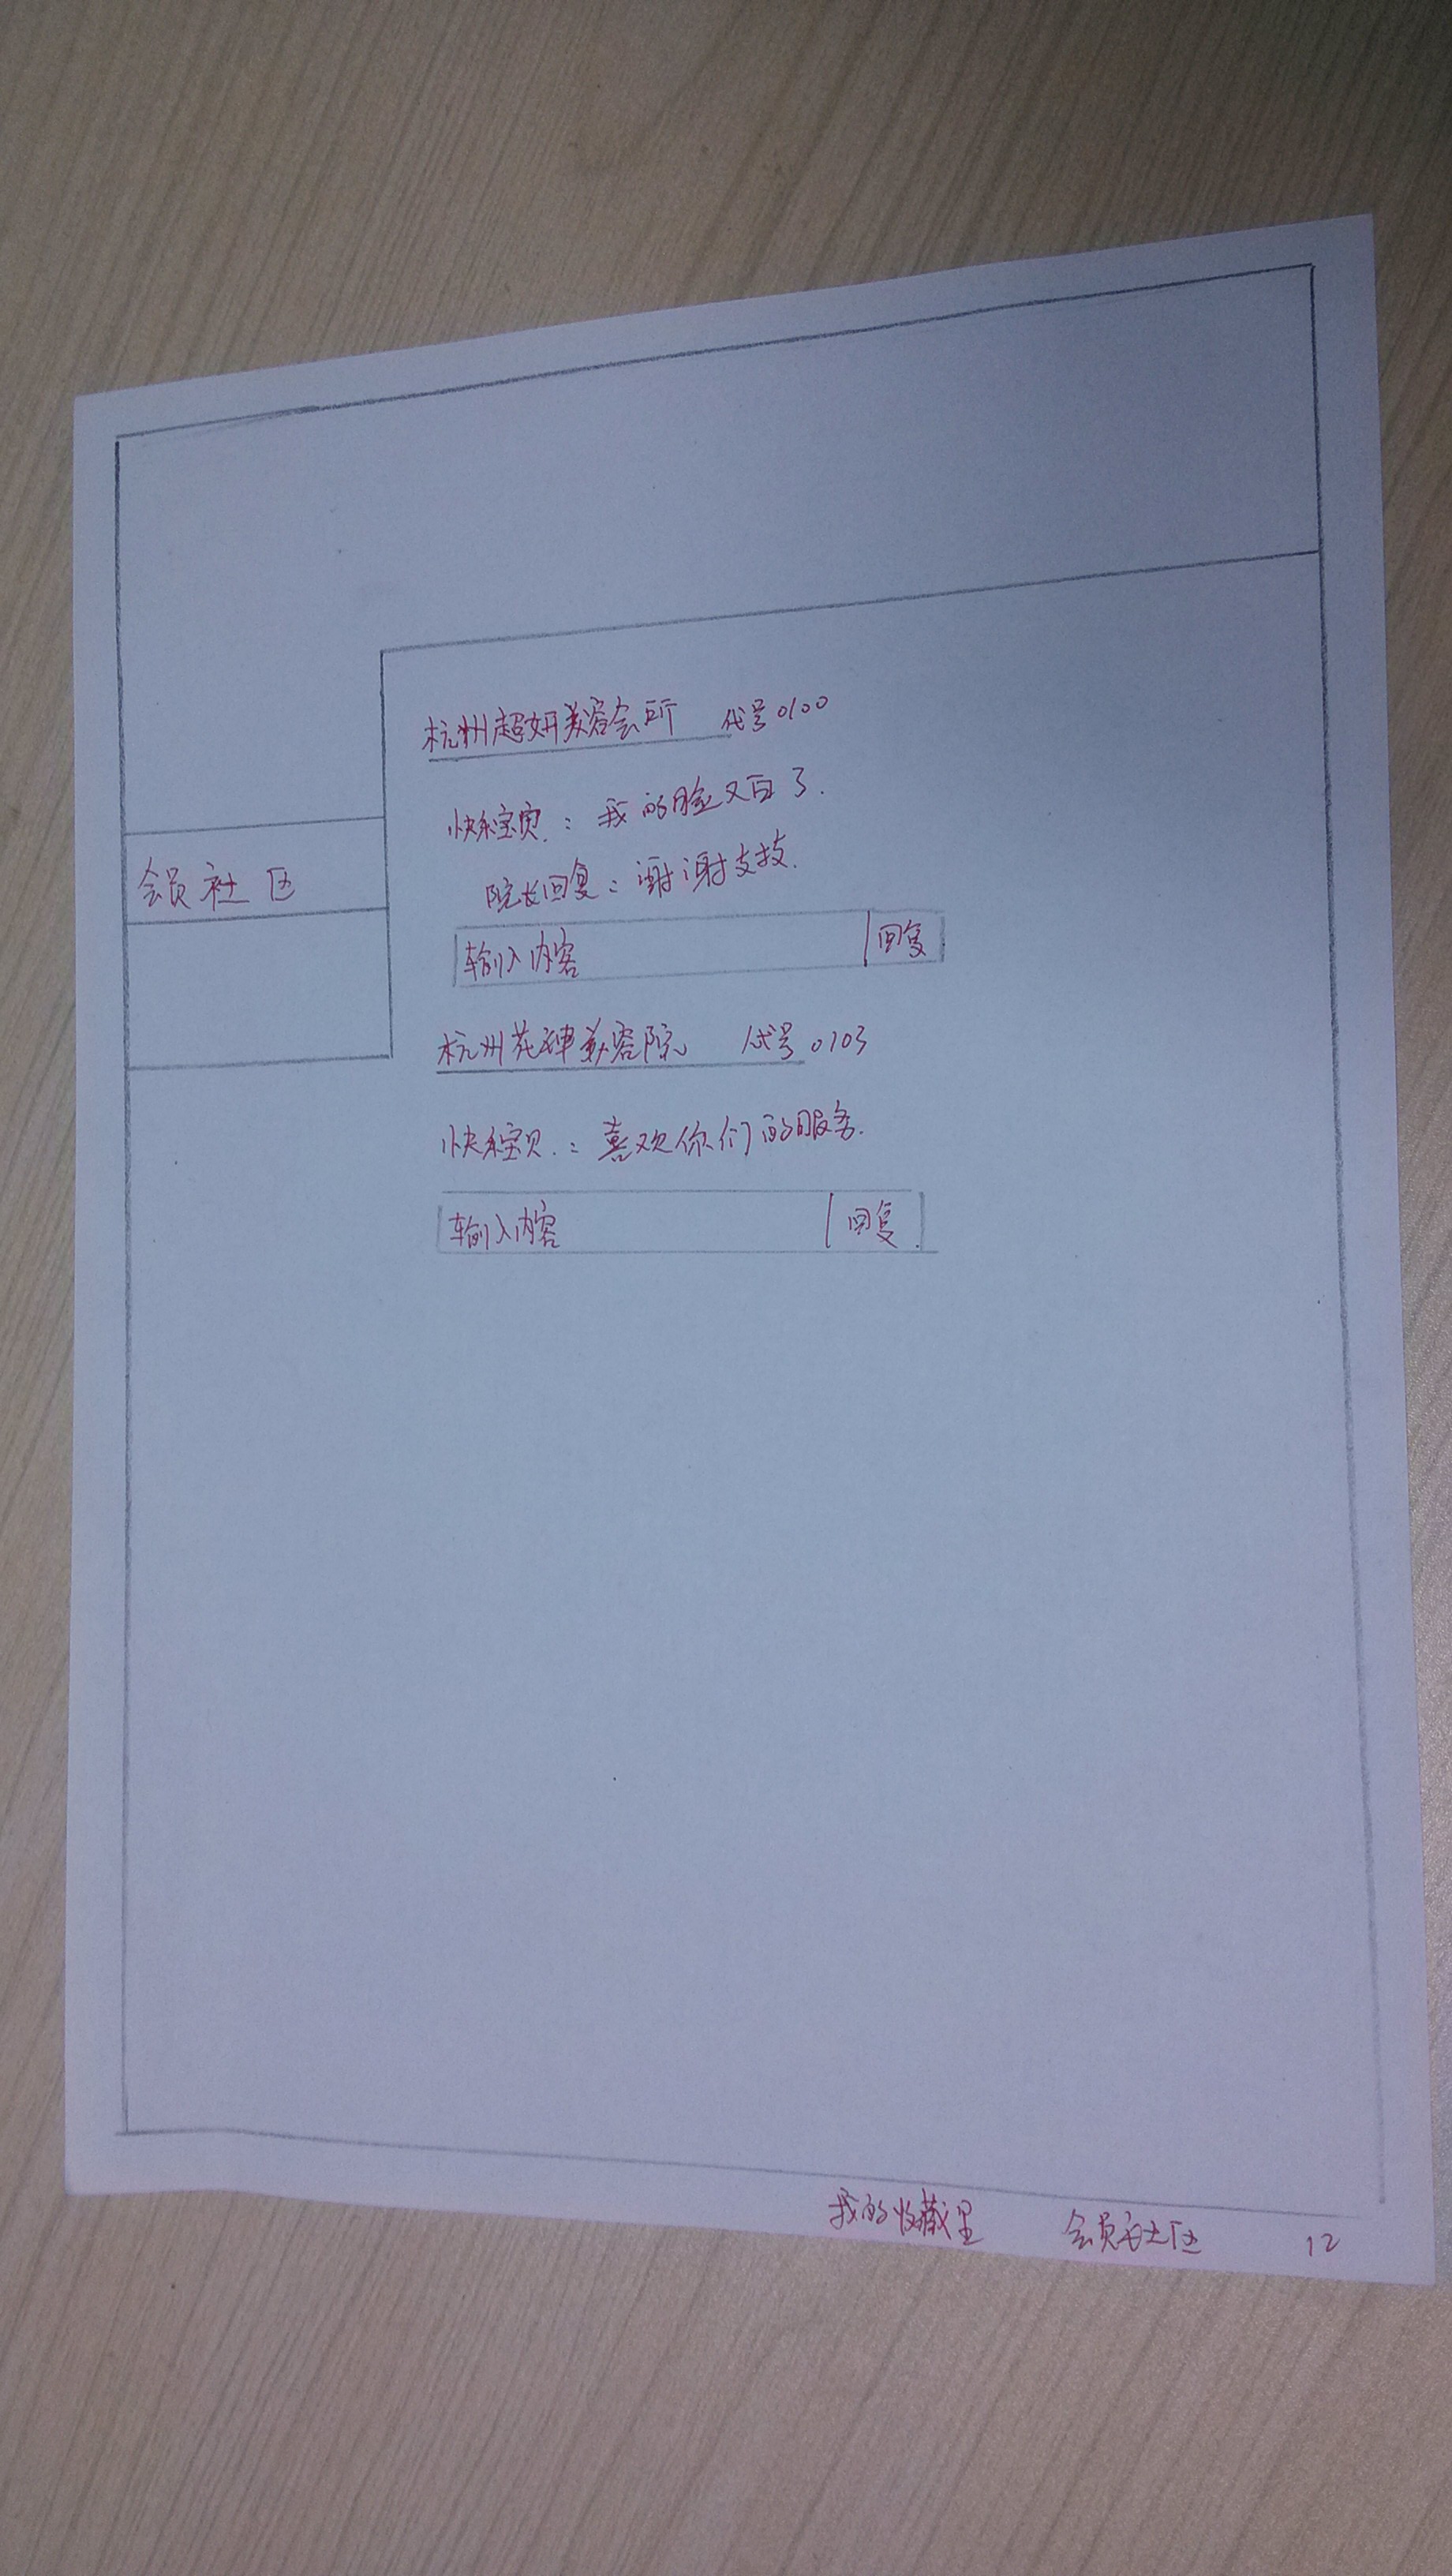 杭州超妍美容会所 代号0100
快乐宝贝：我的脸又白了.
院长回复：谢谢支技.
会员社区
输入内容 回复
杭州花神美容院 代号0103
快乐宝贝：喜欢你们的服务.
输入内容 回复.
我的收藏里 会员社区 12